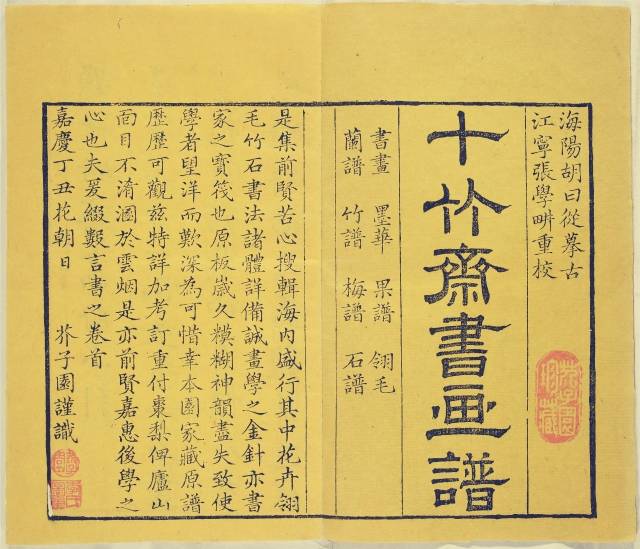 海陽胡曰從摹古
江寧張學畊重校
十竹齋書画譜
書畫 墨華 果譜 翎毛
蘭譜 竹譜 梅譜 石譜
是集前賢苦心搜輯海內盛行其中花卉翎
毛竹石書法諸體詳備誠畫學之金針亦書
家之寶筏也原板歲久糢糊神韻盡失致使
學者望洋而歎深為可惜幸本園家藏原譜
歷歷可觀茲特詳加考訂重付棗梨俾廬山
面目不淆溷於雲烟是亦前賢嘉惠後學之
心也夫爰綴數言書之卷首
嘉慶丁丑花朝日 芥子園謹識
芥子園
珍藏